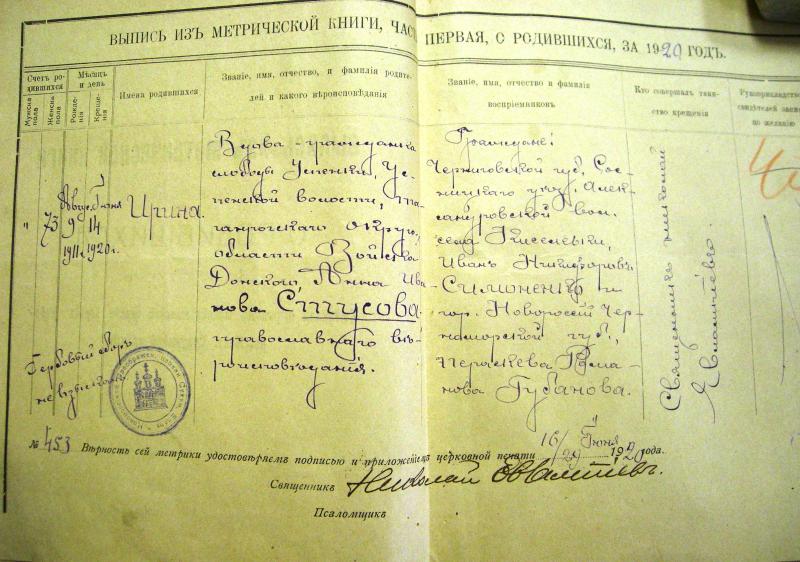 ВЫПИСЬ ИЗЪ МЕТРИЧЕСКОЙ КНИГИ, ЧАС ПЕРВАЯ, О РОДИВШИХСЯ, ЗА 1920 ГОДЪ.
Счетъ родившихся
Мужска пола
Женска пола
Мѣсяцъ и день
Рожденія
Крещенія
Имена родившихся
Званіе, имя, отчество, и фамилія родителей и какого вѣроисповѣданія
Званіе, имя, отчество и фамилія воспріемниковъ
Кто совершалъ таинство крещенія
Рукоприкладство свидѣтелей записи по желанію
73
Август. 9 1911 г.
Іюня 14 1920 г.
Ирина.
Вдова-гражданка
слободы Успенки, Ус-
пенской волости, Та-
ганрогскаго округа,
области Войска
Донского Анна Ива-
нова Стусова
православнаго вѣ-
роисповѣданія.
Граждане:
Черниговской губ., Сос-
ницкаго уѣзд. Алек-
сандровской вол.
села Киселевки,
Иванъ Никифоровъ
Симоненко и
гор. Новоросій Чер-
номорской губ.,
Параскева Рома-
нова Губанова.
Священникъ Николай
Гербовый сборъ
не взысканъ
№ 453 Вѣрность сей метрики удостовѣряемъ подписью и приложеніемъ церковной печати 16/29 Іюня 1920 года.
Священникъ Николай
Псаломщикъ